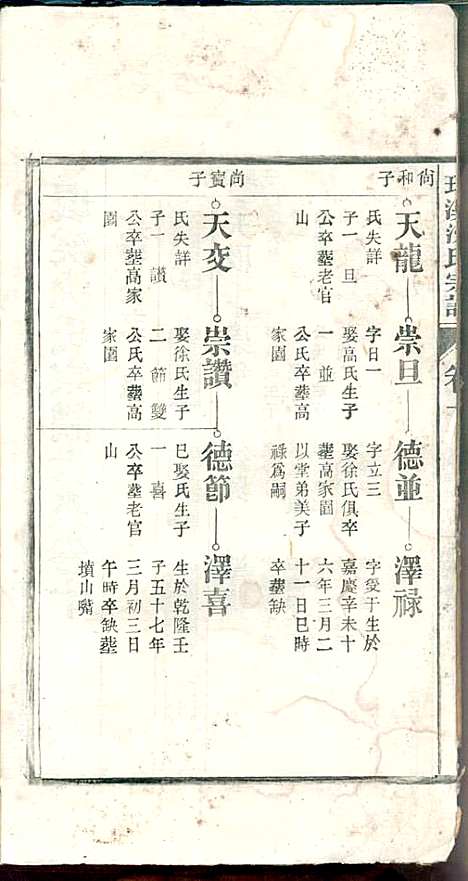 氏宗譜
卷
尚和子
天龍
氏失詳
子一旦
公卒塟老官
山
崇旦
字日一
娶高氏生子
一並
公氏卒塟高
家園
德並
字立三
娶徐氏俱卒
塟高家園
以堂弟美子
祿爲嗣
澤祿
字受于生於
嘉慶辛未十
六年三月二
十一日巳時
卒塟缺
尚寳子
天交
氏失詳
子一讃
公卒塟高家
園
崇讃
娶徐氏生子
二節雙
公氏卒塟高
家園
德節
已娶氏生子
一喜
公卒塟老官
山
澤喜
生於乾隆壬
子五十七年
三月初三日
午時卒缺塟
墳山嘴